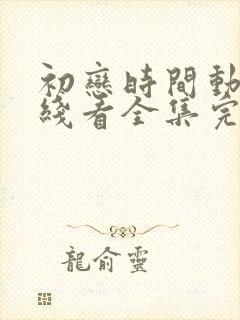 初戀時間動
綫看全集完
龍俞靈